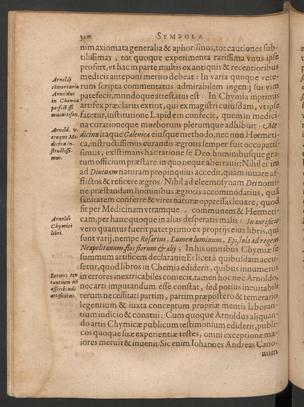 SYMBOLA
nim axiomata generalia & aphorismos, tot cautiones sub-
tilissimas, tot quoque experimenta rarissima vnus ipse
profert, vt hac in parte multis ex antiquis & recentioribus
medicis anteponi merito debeat: In varia quoque vete-
rum scripta commentatus admirabilem ingenij sui vim
patefecit, mondoque attestatus est. In Chymia imprimis
artifex præclarus extitit, qui ex magistri cuiusdam, vt ipse
fatetur, institutione Lapidem confecit, quem in medici-
na curationeque morborum plerumque adhibuit: Me-
dicina itaque Galenica eiusque methodo, nec non Hermeti-
ca, instructissimus curandis ægrotis semper fuit occupatis-
simus, existimans hac ratione se Deo hominibusque gra-
tum officium præstare, in quo neque aberrauit: Nihil enim
ad Diuinam naturam propinquius accedit, quam iuuare af-
flictos & reficere ægros. Nihil ad eleemosynam Dei nomi-
ne præstandam hominibus ægrotis accommodatius, quam
sanitatem conferre & vires naturæ oppressas leuare, quod
fit per Medicinam vtramque, communem & Hermeti-
cam, per hanc quoque in alias desperatis malis: In aurifica
vero quantus fuerit patet primo ex proprijs eius libris, qui
sunt varij, nempe Rosarius, Lumen luminum, Epistola ad regem
Neapolitanum, flos florum & alij: In his omnibus Chymiæ se
summum artificem declarauit: Et licet à quibusdam accu-
setur, quod libros in Chemia ediderit, quibus innumeros
in errores inextricabiles coniecit, tamen hoc nec Arnoldo,
nec arti imputandum esse constat, sed potius ineuitabili
rerum necessitati partim, partim præpostero & temerario
legentium & iuxta conceptum propriæ mentis Liboran-
tium iudicio & conatui: Cum quoque Arnoldus aliquan-
do artis Chymicæ publicum testimonium ediderit, public-
cos quoque suæ experientiæ testes, omni exceptione ma-
iores meruit & inuenit: Sic enim Iohannes Andreas Cano-
num
Arnoldi
Chymici
libri.